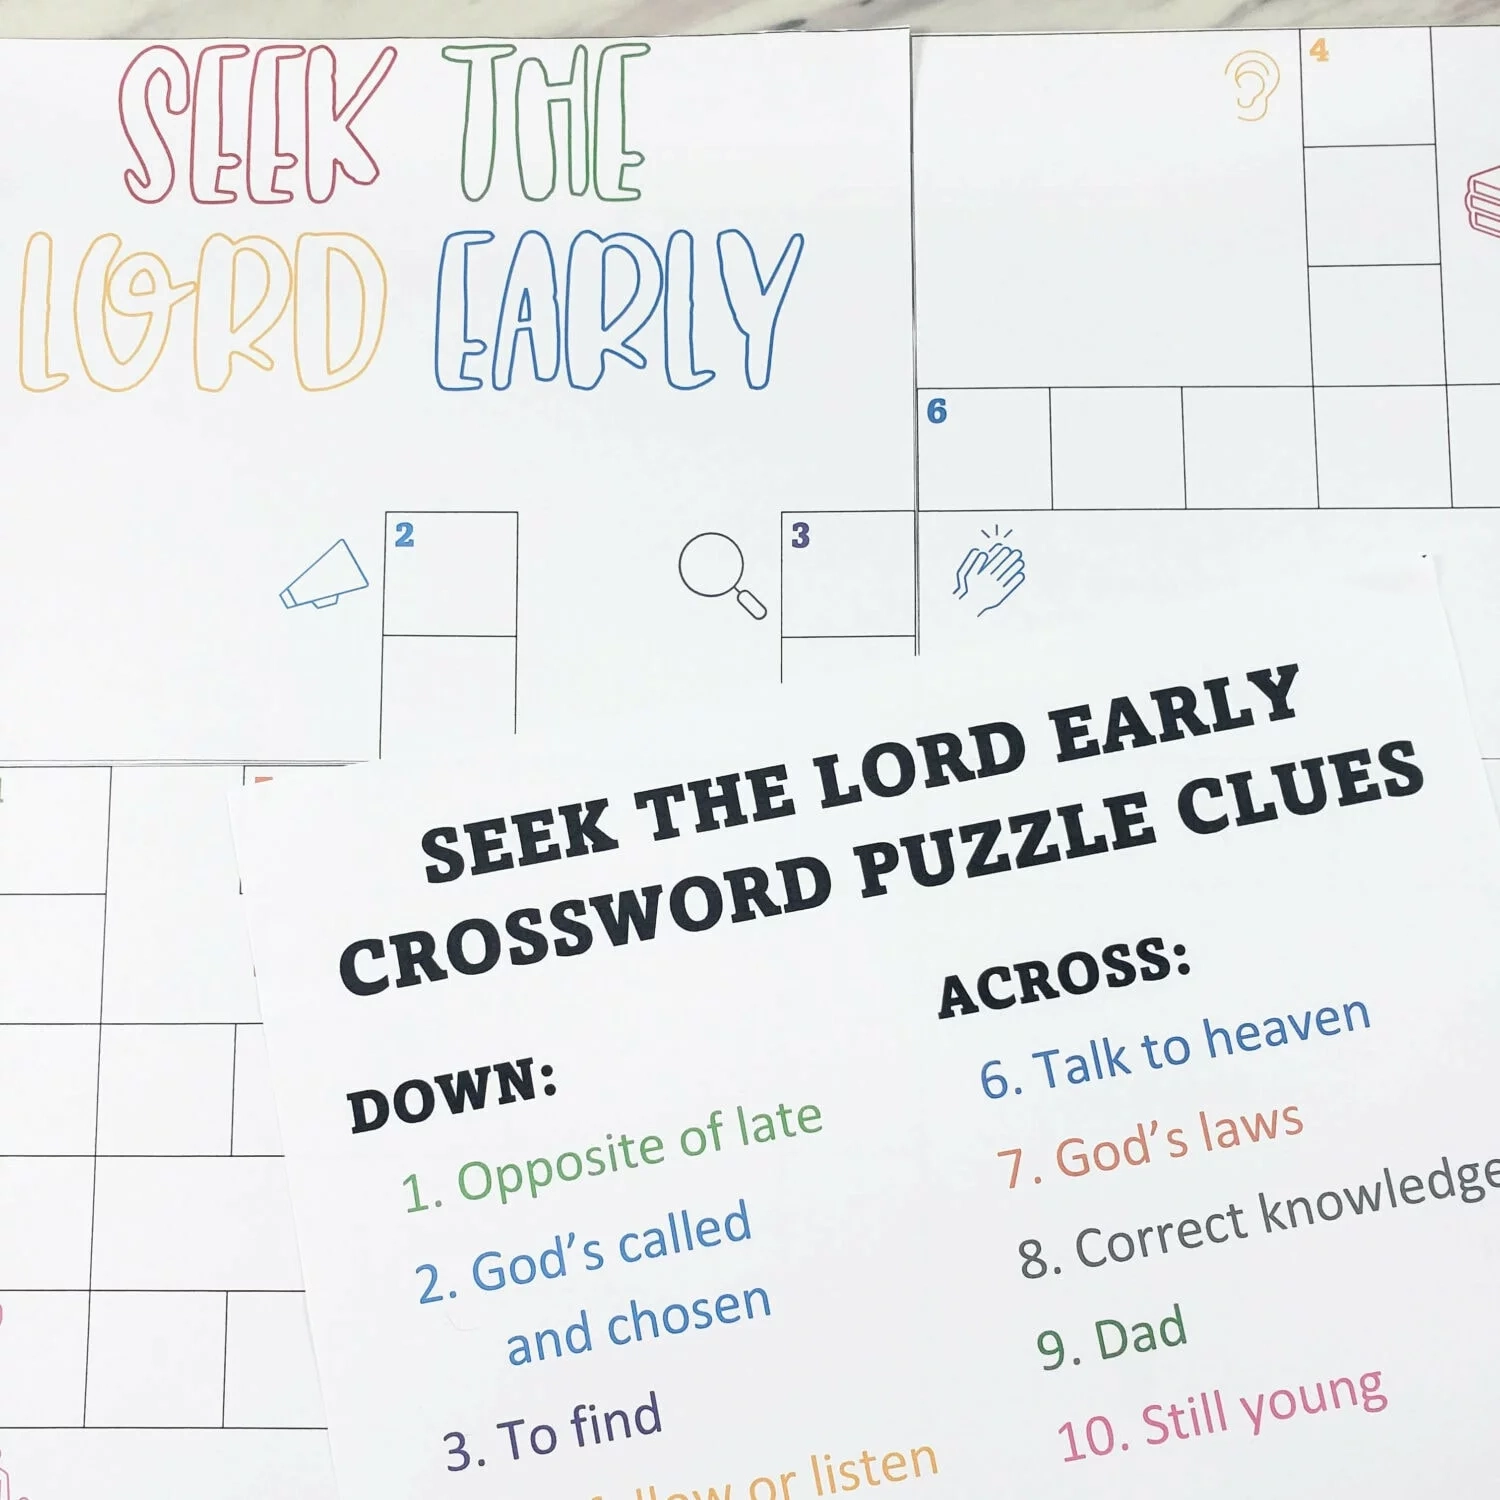 SEEK THE
LORD EARLY
4
6
2
3
SEEK THE LORD EARLY
CROSSWORD PUZZLE CLUES
DOWN:
1. Opposite of late
2. God's called
and chosen
3. To find
or listen
ACROSS:
6. Talk to heaven
7. God's laws
8. Correct knowledge
9. Dad
10. Still young